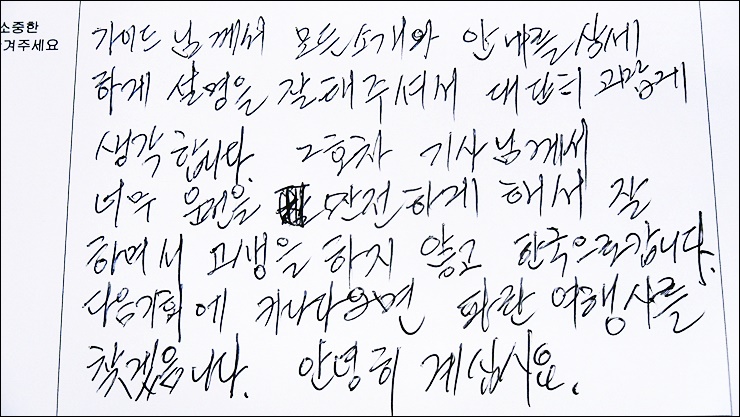 소중한
겨주세요
가이드님께서 모든 소개와 안내를 상세
하게 설명을 잘해주셔서 대단히 고맙게
생각합니다. 2호차 기사님께서
너무 운전을 안전하게 해서 잘
하며서 고생을 하지 않고 한국으로갑니다.
다음기회에 캐나다오면 파란여행사를
찾겠읍니다. 안녕히 계십시요.